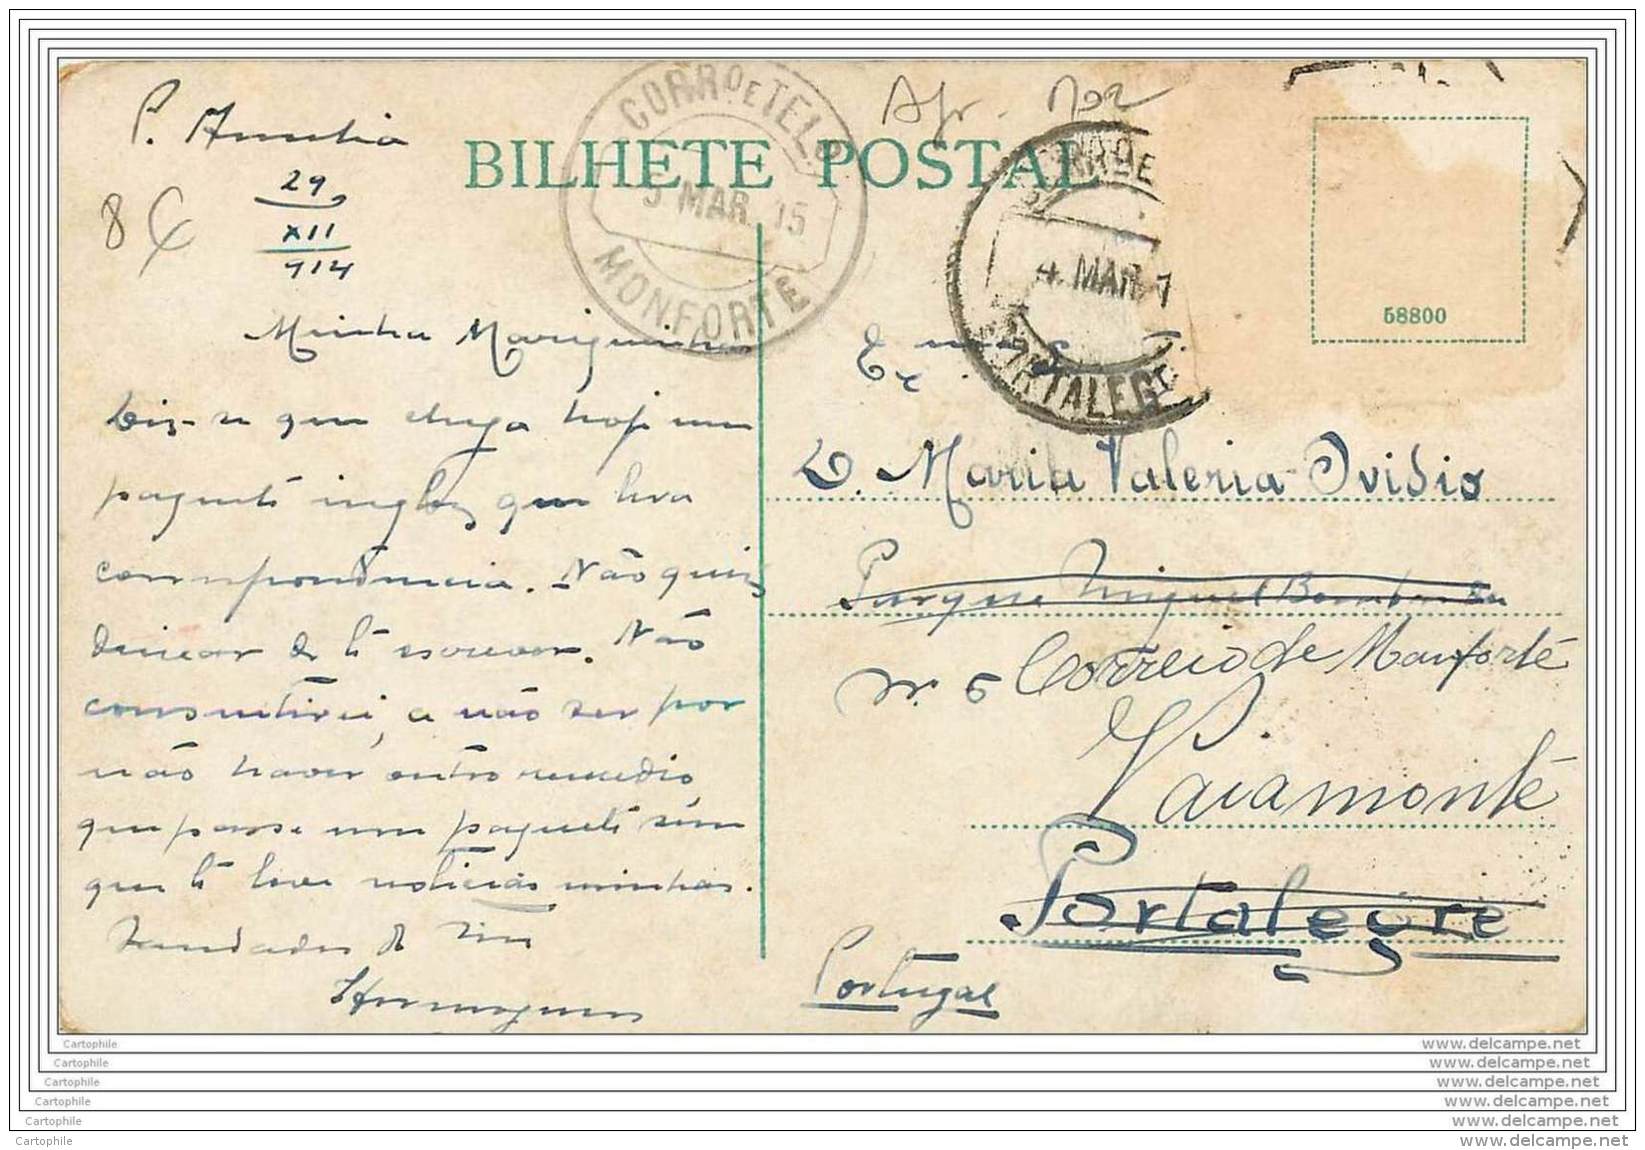 P. Amelia
29
XII
914
8
BILHETE POSTAL
CORRO E TELO
9 MAR. 15
MONFORTE
Afr.
CORRO E
4 MAR 1
PORTALEGRE
58800
Minha Mariquinhas
Diz-se que chega hoje um
paquete inglez que leva
correspondencia. Não quiz
deixar de te escrever. Não
consentirei, a não ser por
não haver outro remedio
que passe um paquete sem
que te leve noticias minhas.
Saudades do teu
Hermogenes
Exma
D. Maria Valeria Ovidio
Parque Miguel Bombarda
Nº 5 Correio de Monforte
Vaiamonte
Portalegre
Portugal
Cartophile
www.delcampe.net
Cartophile
www.delcampe.net
Cartophile
www.delcampe.net
Cartophile
www.delcampe.net
Cartophile
www.delcampe.net
Cartophile
www.delcampe.net